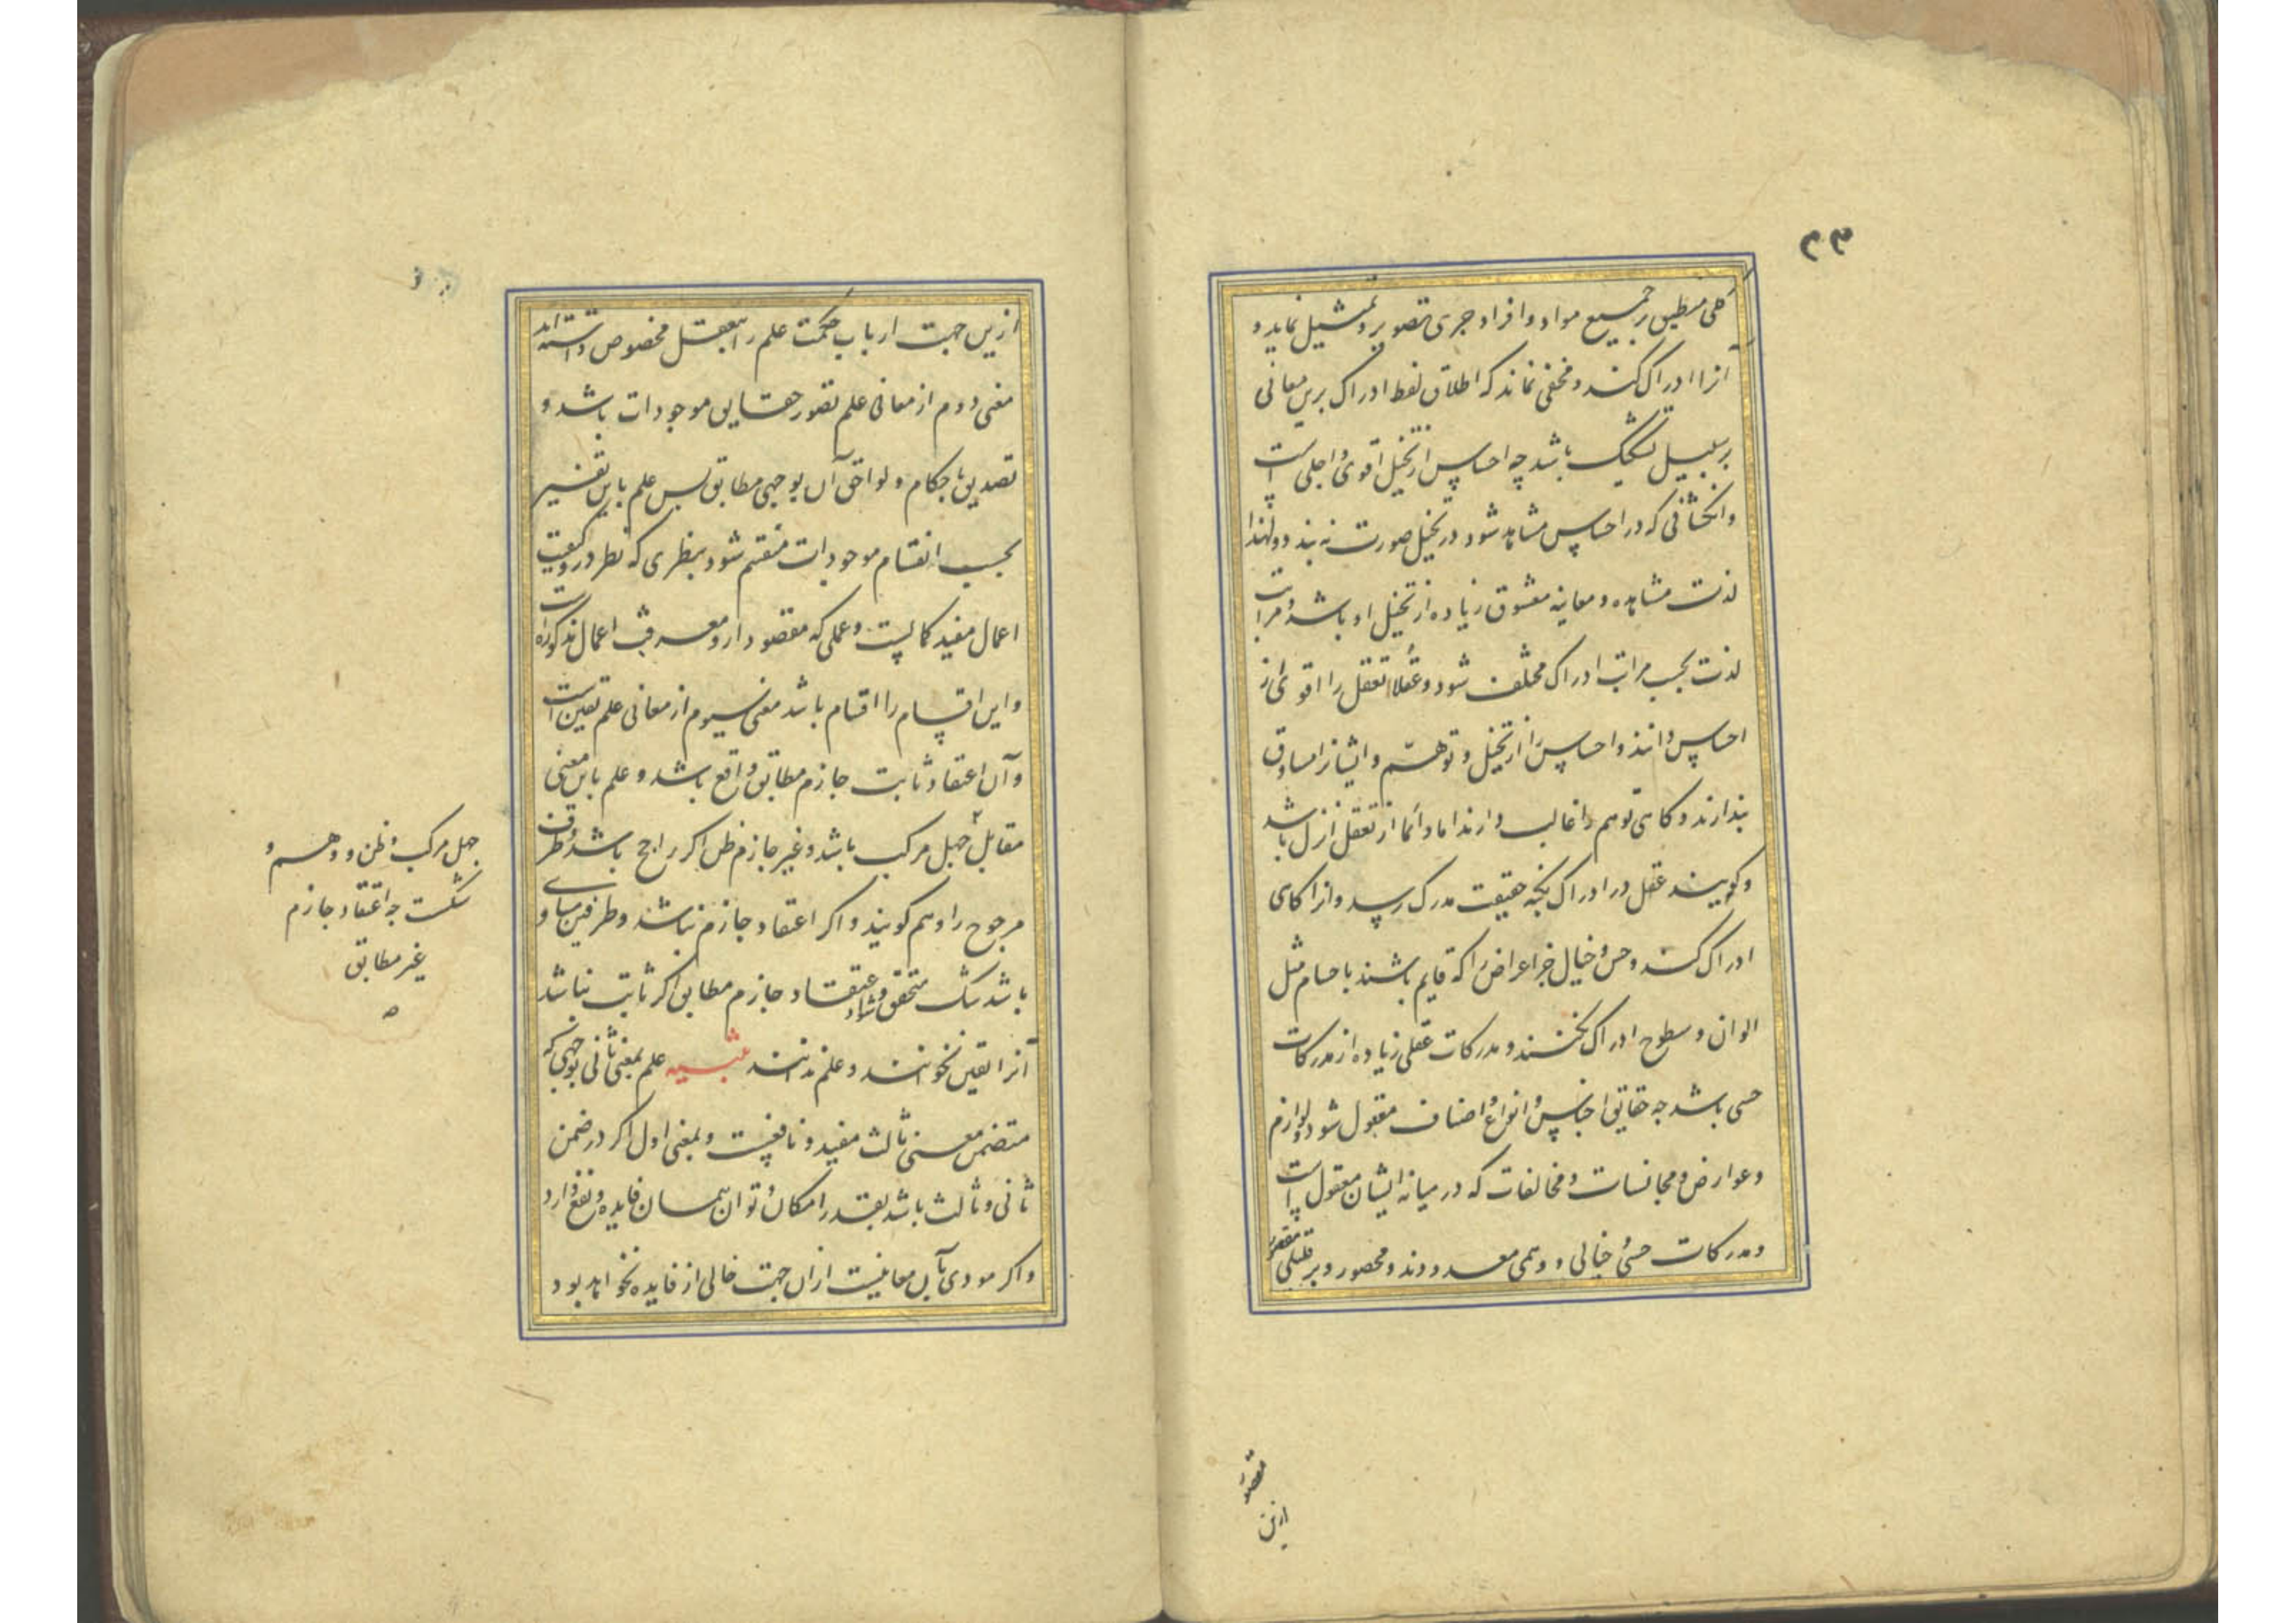 ۲۳
کلی منطبق بر جمیع مواد و افراد جزی تصویر و تمثیل نماید و
آنرا ادراک کند و مخفی نماند که اطلاق لفظ ادراک برین معانی
بر سبیل تشکیک باشد چه احساس از تخیل اقوی و اجلی است
و انکشافی که در احساس مشاهد شود در تخیل صورت نه بندد و لهذا
لذت مشاهده و معاینه معشوق زیاده از تخیل او باشد و مراتب
لذت بحسب مراتب ادراک مختلف شود و عقلا تعقل را اقوی از
احساس دانند و احساس را از تخیل و توهم و ایشانرا مساوق
پندارند و کاهی توهم را غالب دارند اما دائما از تعقل انزل باشد
و کویند عقل در ادراک بکنه حقیقت مدرک رسد و انرا کاهی
ادراک کند و حس و خیال جز اعراض را که قایم باشند باجسام مثل
الوان و سطوح ادراک نکنند و مدرکات عقلی زیاده از مدرکات
حسی باشد چه حقایق اجناس و انواع و اصناف معقول شود و لوازم
و عوارض و مجانسات و مخالفات که در میانه ایشان معقول است
و مدرکات حسی و خیالی و وهمی معدودند و محصور و بر قلیلی مقصور
مقصور
ازین
ازین جهت ارباب حکمت علم را بتعقل مخصوص داشته‌اند
معنی دوم از معانی علم تصور حقایق موجودات باشد و
تصدیق باحکام و لواحق آن بوجهی مطابق پس علم باین تفسیر
بحسب انقسام موجودات منقسم شود بنظری که نظر در
اعمال مفید کمالیست و عملی که مقصود ازو معرفت اعمال مذکوره است
و این اقسام را اقسام باشد معنی سیوم از معانی علم یقین است
و آن اعتقاد ثابت جازم مطابق واقع باشد و علم باین معنی
مقابل جهل مرکب باشد و غیر جازم ظن اکر راجح باشد و طرف
مرجوح را وهم کویند و اکر اعتقاد جازم نباشد و طرفین مساوی
باشد شک متحقق شود و اعتقاد جازم مطابق اکر ثابت نباشد
آنرا یقین نخوانند و علم ندانند تنبیه علم بمعنی ثانی بوجهی که
متضمن معنی ثالث مفید و نافعیست و بمعنی اول اکر در ضمن
ثانی و ثالث باشد بقدر امکان و توان همسان فایده و نفع دارد
و اکر مودی بآن معانیست ازان جهت خالی از فایده نخواهد بود
جهل مرکب و ظن و وهم و
شکست چه اعتقاد جازم
غیر مطابق